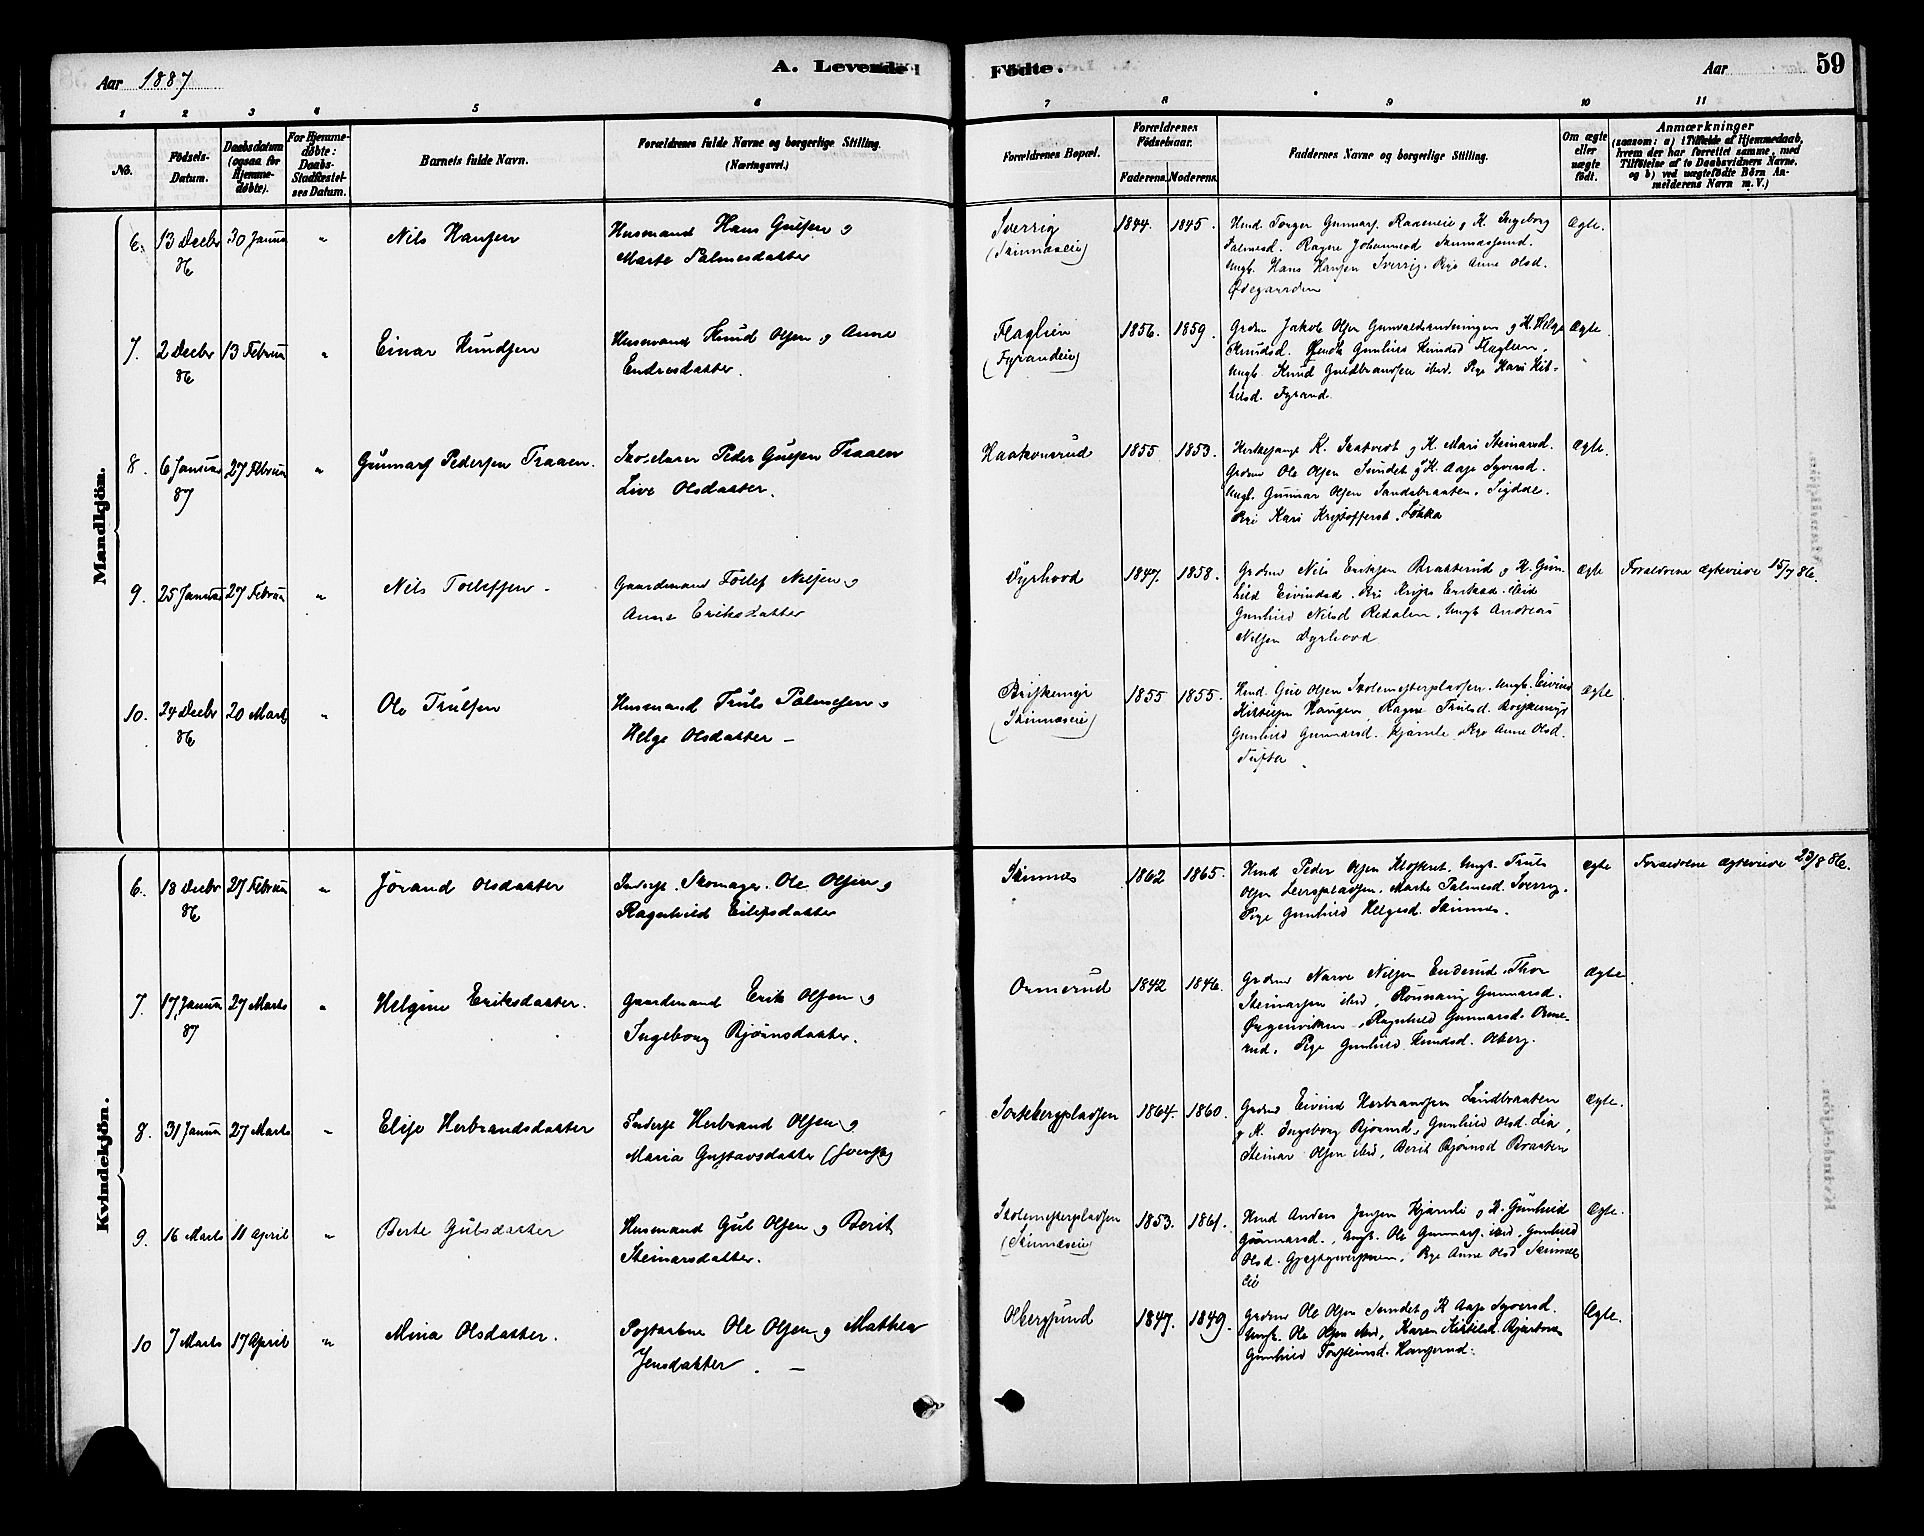 Aar 1887
A. Levende
Födte.
Aar
59
1 2 3 4 5 6 7 8 9 10 11
No.
Födsels-
Datum.
Daabsdatum
(ogsaa for
Hjemme-
döbte).
For Hjemme-
döbte:
Daabs-
Stadfæstel-
ses Datum.
Barnets fulde Navn.
Forældrenes fulde Navne og borgerlige Stilling.
(Næringsvei.)
Forældrenes Bopæl.
Forældrenes
Födselsaar.
Faderens. Moderens.
Faddernes Navne og borgerlige Stilling.
Om ægte
eller
uægte
födt.
Anmærkninger
(saasom: a) i Tilfælde af Hjemmedaab,
hvem der har forrettet samme, med
Tilföielse af to Daabsvidners Navne,
og b) ved uægtefödte Börn An-
melderens Navn m. V.)
Mandkjön.
6. 13 Decbr 30 Januar " Nils Hansen Husmand Hans Gulsen og Sverrig 1844. 1845. Hmd Torger Gunnars. Raaeneie og K. Ingeborg Ægte.
86 Marte Palmesdatter (Skinnæseie) Palmesd. Ragne Johannesd
Ungk. Hans Hansen Sverrig. Pige Anne Olsd.
Ødegaarden
7. 2 Decbr 13 Februar " Einar Knudsen Husmand Knud Olsen og Anne Flaglien 1856. 1859. Grdm Jakob Olsen og K. Helge Ægte.
86 Endresdatter. (Fyrandeie) Knudsd. Gunhild Knudsd Flaglien,
Ungk. Knud Guldbrandsen ibid. Pige Kari Kit-
tilsd. Fyrand.
8. 6 Januar 27 Februar " Gunnar Pedersen Traaen. Skolelærer Peder Gulsen Traaen Haakonsrud 1855 1853. Kirkesang. K. Skatvedt og K. Mari Steinarsd. Ægte.
87 Live Olsdatter. Grdm Ole Olsen Sundet og K. Aase Syversd.
Ungk. Gunnar Olsen Sandsbraaten. Sigdal.
Pige Kari Kristoffersd. Løkka
9. 25 Januar 27 Februar " Nils Tollefsen. Gaardmand Tollef Nilsen og Dyrhovd 1847. 1858. Grdm Nils Eriksen Braaterud og K. Gun- Ægte Forældrene ægteviede 15/7 86.
Anne Eriksdatter hild Eivindsd. Pige Eriksd. ibid
Gunhild Nilsd Redalen, Ungk Andreas
Nilsen Dyrhovd
10. 24 Decbr 20 Marts " Ole Trulsen Husmand Truls Palmesen og Briskemyr 1855 1855. Hmd. Gul Olsen Skolemesterpladsen. Ungk. Eivind Ægte
86 Helge Olsdatter (Skinnæseie) Kittilsen Haugen, Ragne Trulsd. Briskemyr
Gunhild Gunnarsd. Kjømle Pige Anne Olsd.
Tufta.
Kvindekjön.
6. 18 Decbr 27 Februar " Jørand Olsdatter Inderst Skomager Ole Olsen og Skinnæs 1862 1865. Hmd Peder Olsen Ungk. Truls Ægte Forældrene ægteviede 23/8 86.
86 Ragnhild Eilifsdatter Olsen Marte Palmesd. Sverrig.
Pige Gunhild Helgesd. Skinnæs.
7. 17 Januar 27 Marts " Helgine Eriksdatter. Gaardmand Erik Olsen og Ormerud 1842 1846. Grdm Narve Nilsen Enderud. Thor Ægte
87 Ingeborg Bjørnsdatter. Steinarsen ibid, Rønnaug Gunnarsd.
Ørgenviken, Ragnhild Gunnarsd. Orme-
rud. Pige Gunhild Knudsd. Olberg.
8. 31 Januar 27 Marts " Elise Herbrandsdatter Inderst Herbrand Olsen og Sortebergpladsen 1864. 1860. Grdm Eivind Herbrandsen Lindbraaten Ægte.
Maria Gustavsdatter (Svensk) og K. Ingeborg Bjørnsd, Gunhild Olsd. Lia,
Steinar Olsen ibid, Berit Bjørnsd Braaten
9. 16 Marts 11 April " Berte Gulsdatter Husmand Gul Olsen og Berit Skolemesterpladsen 1853. 1861. Hmd Anders Jensen Kjømle og K. Gunhild Ægte.
Steinarsdatter. (Skinnæseie) Gunnarsd., Ungk. Ole Gunnars. ibid. Gunhild
Olsd. Pige Anne Olsd Skinnæs
eie
10 7 Marts 17 April " Mina Olsdatter. Ole Olsen og Mathea Olbergsund 1847. 1849. Grdm Ole Olsen Sundet og K Aase Syversd. Ægte.
Jensdatter. Ungk. Ole Olsen ibid, Karen Kittilsd.
Gunhild Torsteinsd. Haugerud.